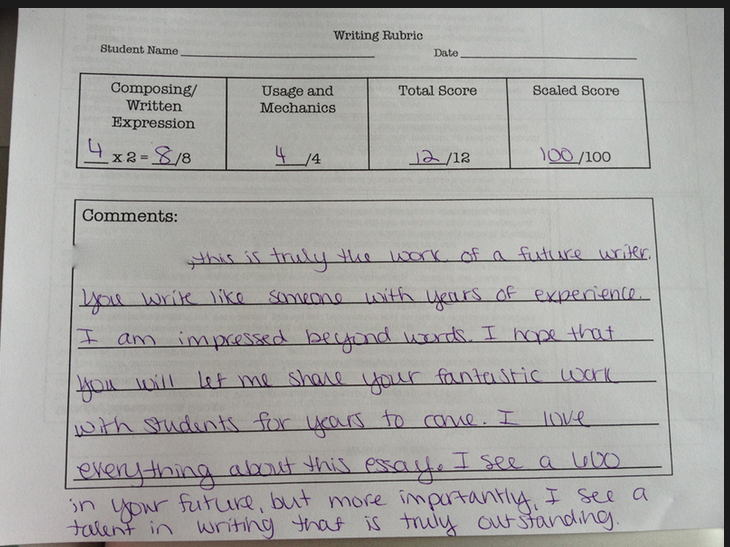 Writing Rubric
Student Name Date
Composing/ Usage and Total Score Scaled Score
Written Mechanics
Expression
4 x 2 = 8/8 4/4 12/12 100/100
Comments:
, this is truly the work of a future writer.
You write like someone with years of experience.
I am impressed beyond words. I hope that
you will let me share your fantastic work
with students for years to come. I love
everything about this essay. I see a 600
in your future, but more importantly, I see a
talent in writing that is truly outstanding.